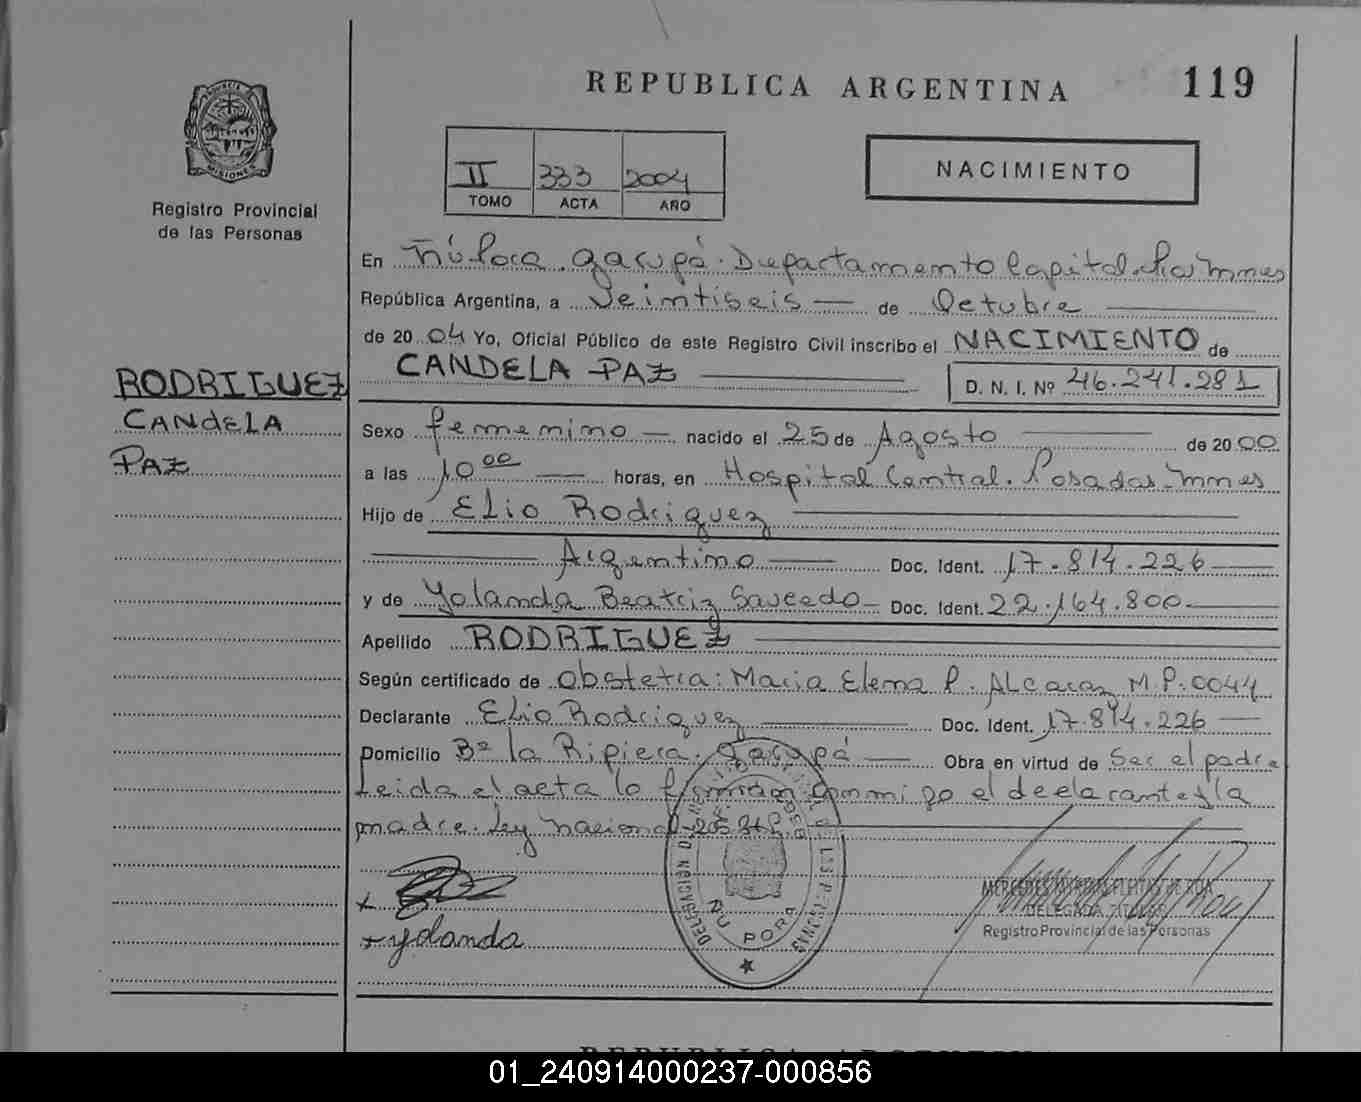 REPUBLICA ARGENTINA
119
II 333 2004
TOMO ACTA AÑO
NACIMIENTO
MISIONES
Registro Provincial
de las Personas
En Ñú Porá. Garupá. Departamento Capital. Mnes
República Argentina, a Veintiseis de Octubre
de 20 04 Yo, Oficial Público de este Registro Civil inscribo el NACIMIENTO de
CANDELA PAZ
D. N. I. Nº 46.241.281
RODRIGUEZ
CANDELA
PAZ
Sexo femenino nacido el 25 de Agosto de 20 00
a las 10 00 horas, en Hospital Central. Posadas-Mnes
Hijo de Elio Rodriguez
Argentino Doc. Ident. 17.814.226
y de Yolanda Beatriz Saucedo Doc. Ident. 22.164.800
Apellido RODRIGUEZ
Según certificado de Obstetra: Maria Elena P. Alcaraz M.P.0044
Declarante Elio Rodriguez Doc. Ident. 17.814.226
Domicilio Bº la Ripiera. Garupá Obra en virtud de Ser el padre
Leida el acta lo firman conmigo el declarante y la
madre. Ley Nacional
x
x Yolanda
DELEGACION DE LAS PERSONAS
ÑU PORA
MERCEDES FLEITAS DE ROA
DELEGADA TITULAR
Registro Provincial de las Personas
REPUBLICA ARGENTINA
01_240914000237-000856